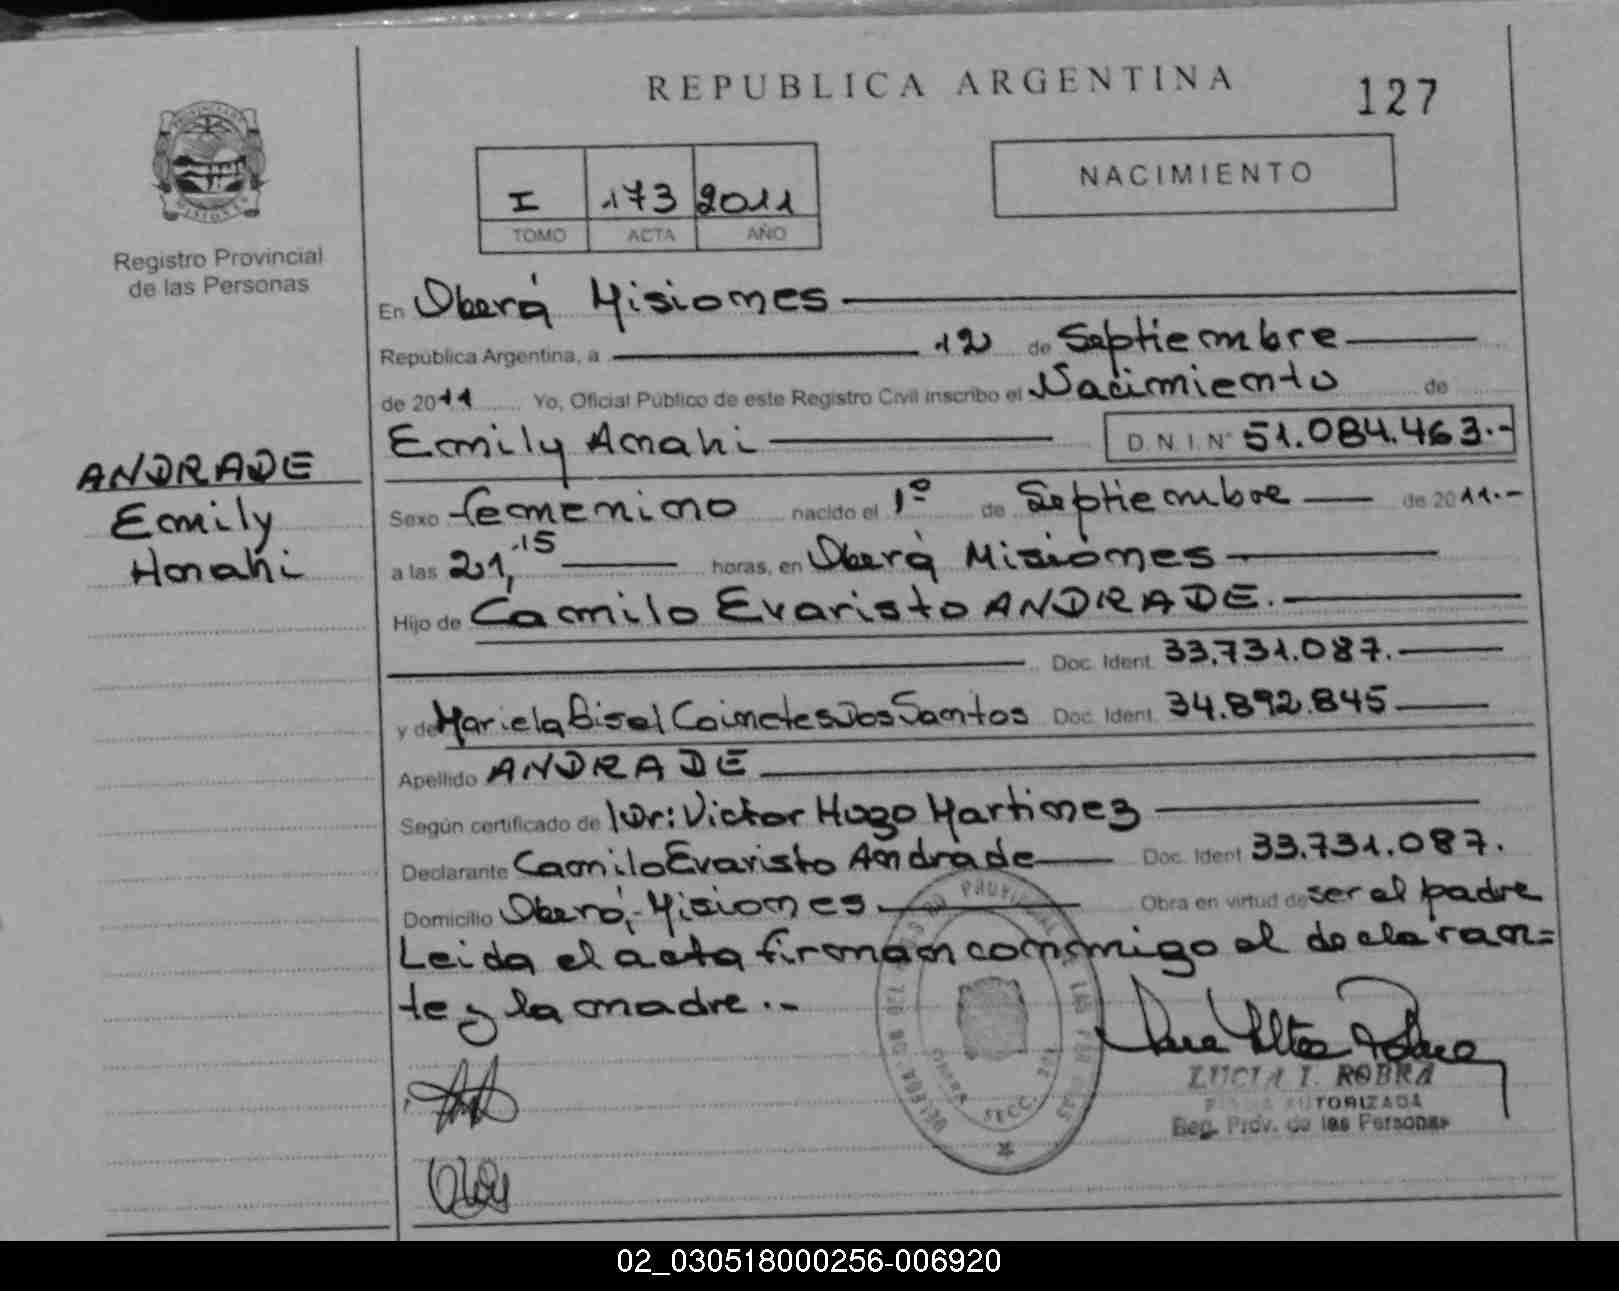 REPUBLICA ARGENTINA
127
PROVINCIA DE MISIONES
Registro Provincial
de las Personas
I 173 2011
TOMO ACTA AÑO
NACIMIENTO
En Oberá Misiones
República Argentina, a 12 de Septiembre
de 2011 Yo, Oficial Público de este Registro Civil inscribo el Nacimiento de
Emily Anahi D.N.I. N° 51.084.463.-
ANDRADE
Emily
Anahi
Sexo femenino nacido el 1° de Septiembre de 2011.-
a las 21,15 horas, en Oberá Misiones
Hijo de Camilo Evaristo ANDRADE.
Doc. Ident. 33.731.087.
y de Mariela Gisel Coimetes Dos Santos Doc. Ident. 34.892.845
Apellido ANDRADE
Según certificado de Dr: Victor Hugo Martinez
Declarante Camilo Evaristo Andrade Doc. Ident. 33.731.087.
Domicilio Oberá,- Misiones Obra en virtud de ser el padre
Leida el acta firman conmigo el declaran=
te y la madre.-
LUCIA I. ROBRA
FIRMA AUTORIZADA
Reg. Prov. de las Personas
02_030518000256-006920